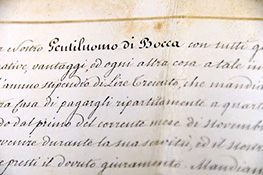 Nostro Gentiluomo di Bocca con tutti g
ative, vantaggi, ed ogni altra cosa a tale i
l'annuo stipendio di Lire Trecento, che mandia
ra Casa di pagargli ripartitamente a quart
do dal primo del corrente mese di Novemb
venire durante la sua servitù, ed il Nostr
e presti il dovuto giuramento. Mandian